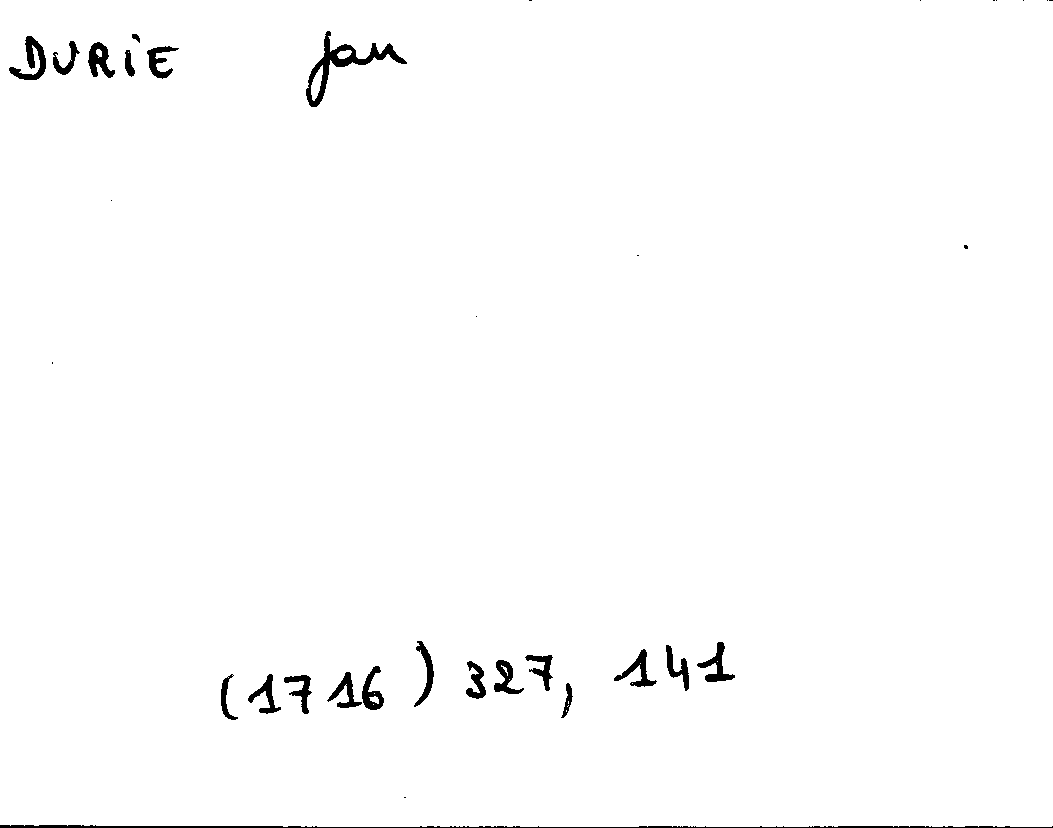 DURIE Jan
(1716) 327, 141